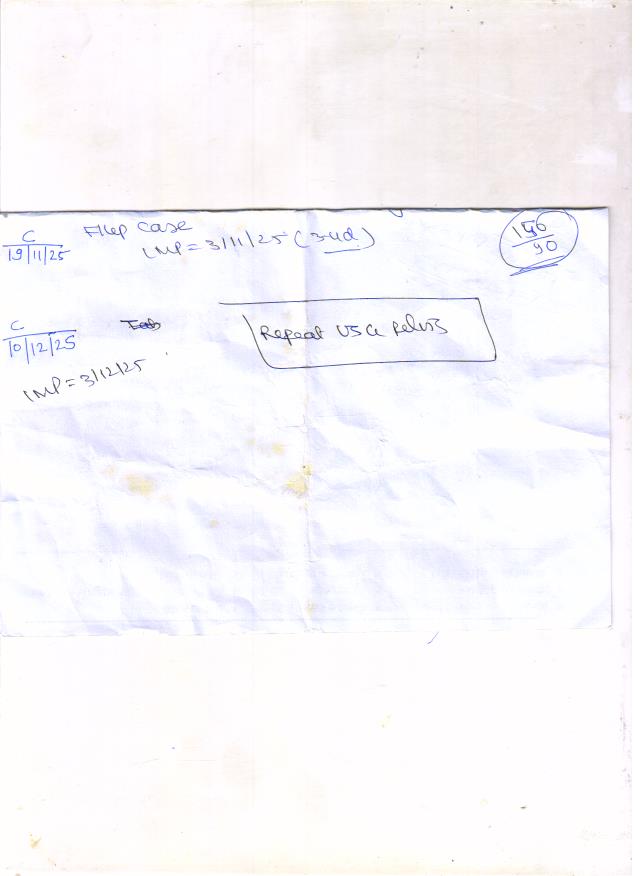 C
19/11/25
F/up case
LMP = 3/11/25 (3-4d.)
90
C
10/12/25
LMP = 3/12/25
Repeat USG Pelvis